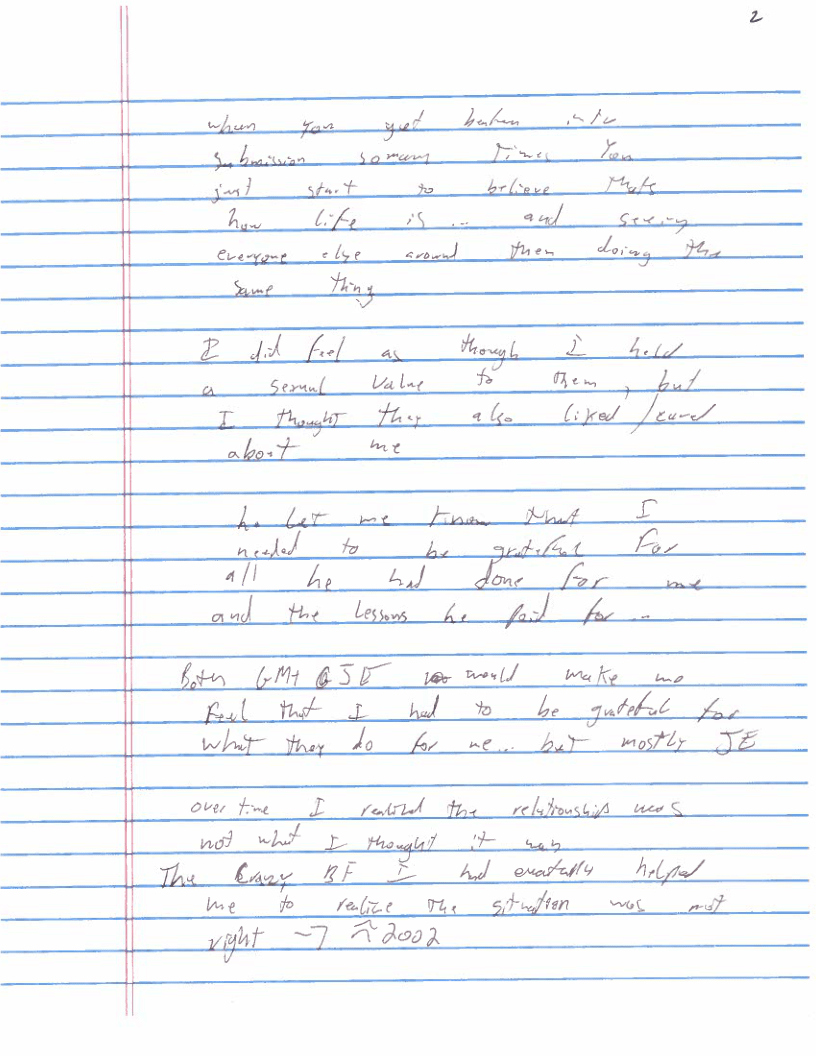 2
when you get beaten into
submission so many Times You
just start to believe thats
how life is ... and seeing
everyone else around them doing the
same thing
I did feel as though I held
a sexual Value to them, but
I thought they also liked / cared
about me
he let me know that I
needed to be grateful For
all he had done for me
and the Lessons he paid for ...
Both GM + JE would make me
Feel that I had to be grateful for
what they do for me... but mostly JE
over time I realized the relationship was
not what I thought it was
The Crazy BF I had eventually helped
me to realize The situation was not
right → ~ 2002